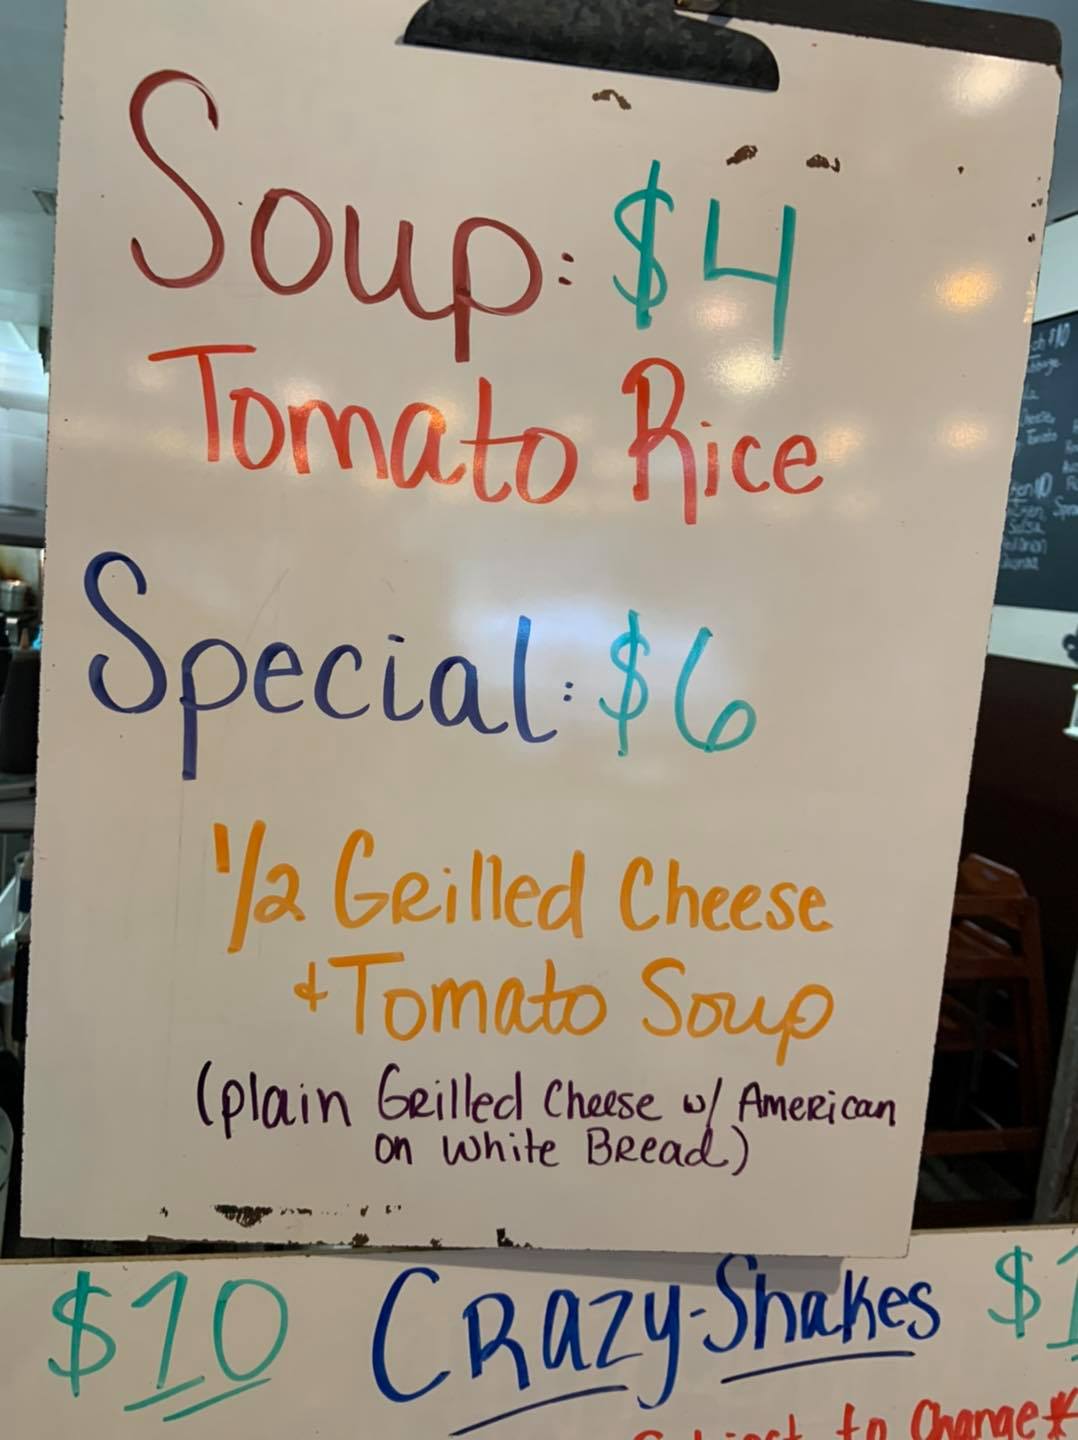 Soup: $4
Tomato Rice
Special: $6
1/2 Grilled Cheese
+ Tomato Soup
(plain Grilled Cheese w/ American
on White Bread)
$10 Crazy-Shakes $1
Subject to Change*